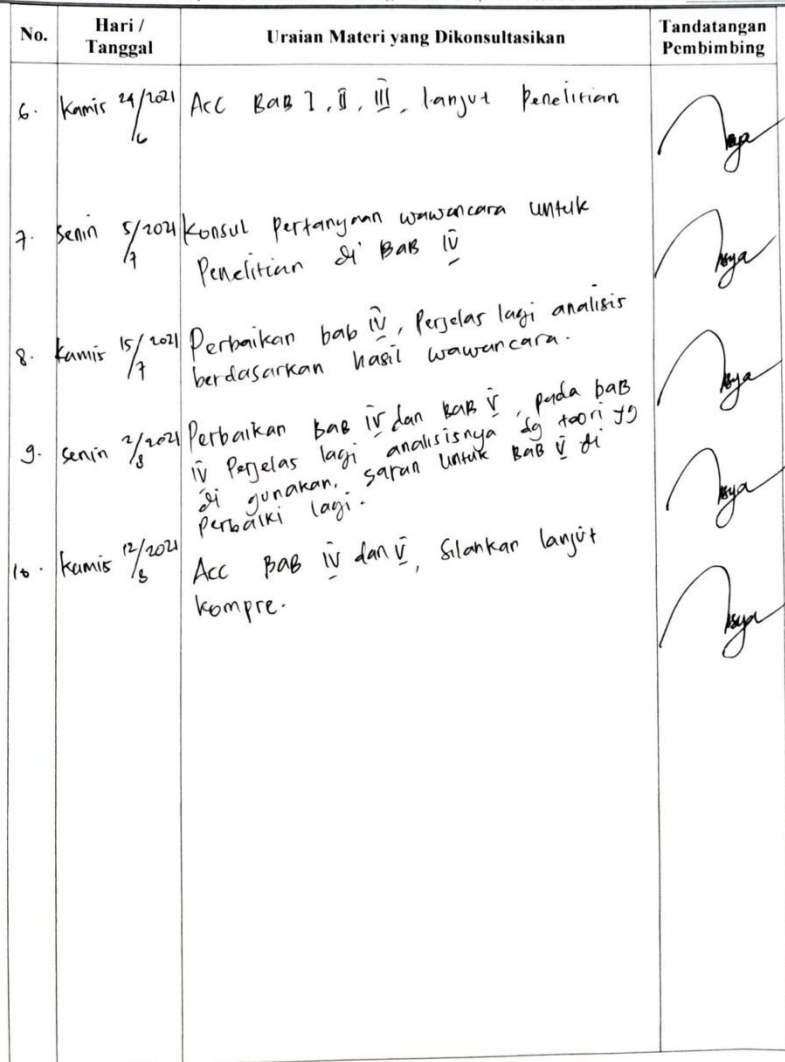 No. Hari / Tanggal Uraian Materi yang Dikonsultasikan Tandatangan Pembimbing
6. Kamis 24/6 2021 Acc BAB I, II, III, lanjut Penelitian
7. Senin 5/7 2021 Konsul Pertanyaan wawancara untuk
Penelitian di BAB IV
8. Kamis 15/7 2021 Perbaikan bab IV, Perjelas lagi analisis
berdasarkan hasil wawancara.
9. Senin 2/8 2021 Perbaikan BAB IV dan BAB V, pada BAB
IV Perjelas lagi analisisnya dg teori yg
di gunakan, saran untuk BAB V di
Perbaiki lagi.
10. Kamis 12/8 2021 Acc BAB IV dan V, Silahkan lanjut
kompre.